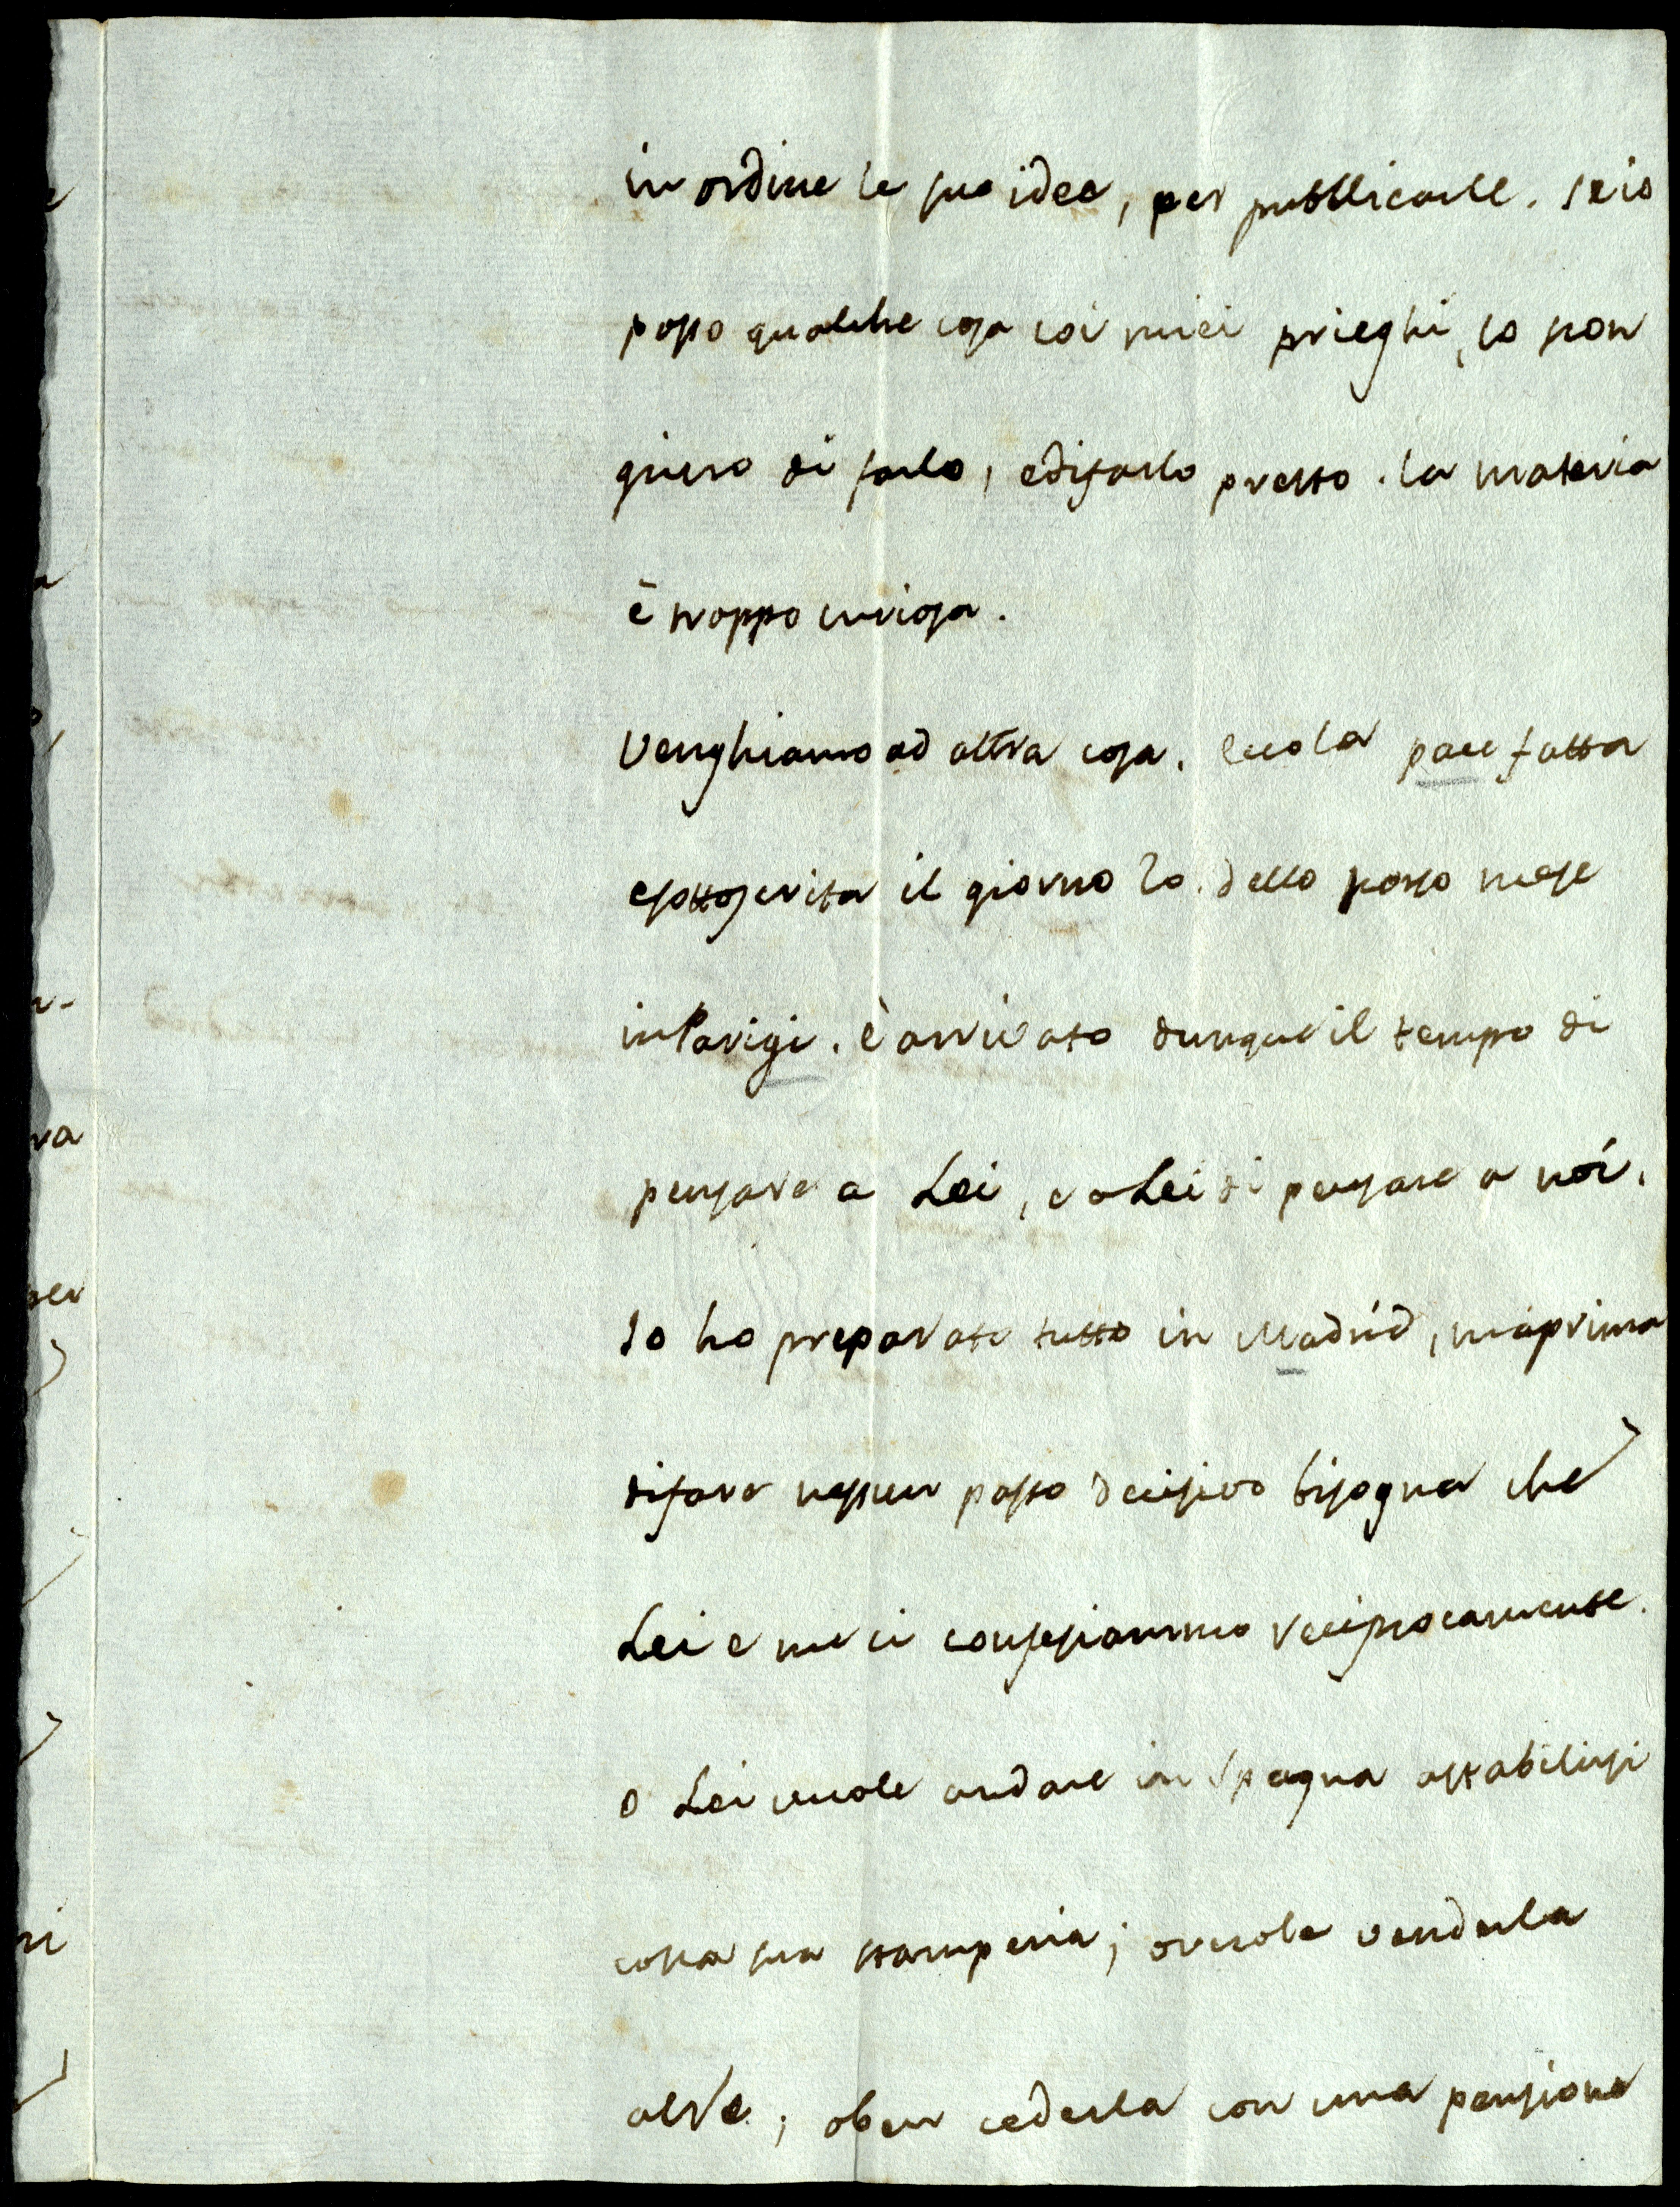 in ordine le sue idee, per pubblicarle. Se io
posso qualche cosa coi miei prieghi, lo scon
giuro di farlo, e di farlo presto. la materia
è troppo curiosa.
Venghiamo ad altra cosa. Ecco la pace fatta
e sottoscrita il giorno 20. dello passo mese
in Parigi. è arrivato dunque il tempo di
pensare a Lei, e a Lei di pensare a noi.
Io ho preparato tutto in Madrid, ma prima
di fare nessun passo decisivo bisogna che
Lei e me ci confessiammo reciprocamente.
o Lei vuole andare in Spagna a stabilirsi
colla sua stamperia; o vuole venderla
al Re; o ben cederla con una pensione